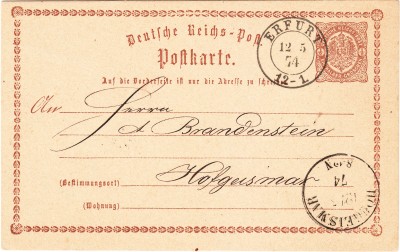 Deutsche Reichs-Post
Postkarte.
ERFURT
12 5
74
12-1.
Auf die Vorderseite ist nur die Adresse zu schreiben
An Herrn
A Brandenstein
Hofgeismar
(Bestimmungsort)
(Wohnung)
HOFGEISMAR
74